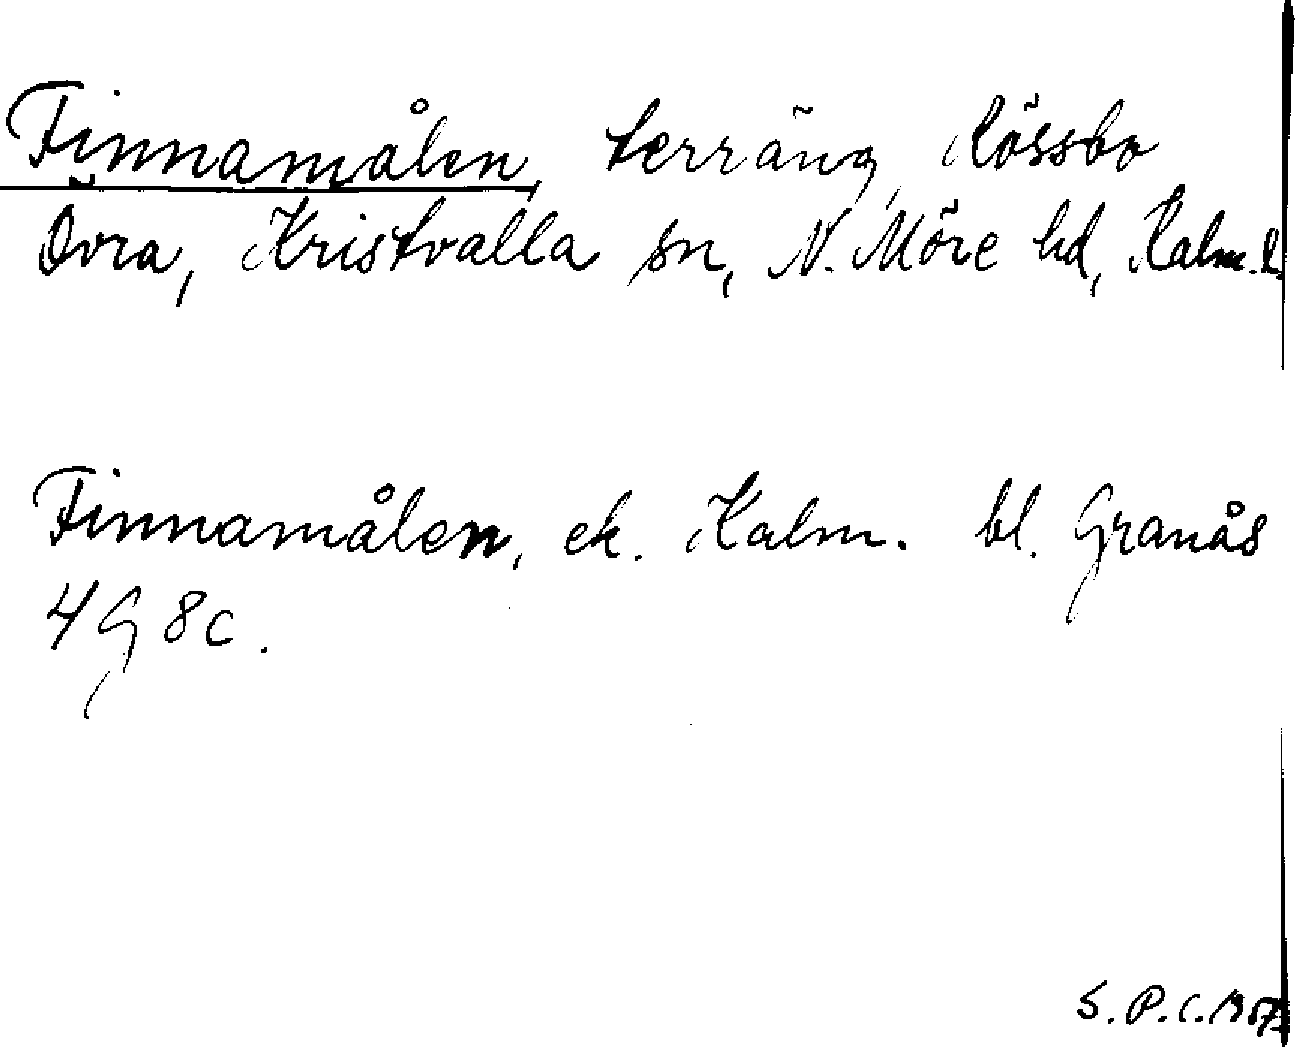 Finnamålen, terräng, Rössbo
Övra, Kristvalla sn, N. Möre hd, Kalm. l.
Finnamålen, ek. Kalm. bl. Granås
4G 8c.
S.P.C. 1957